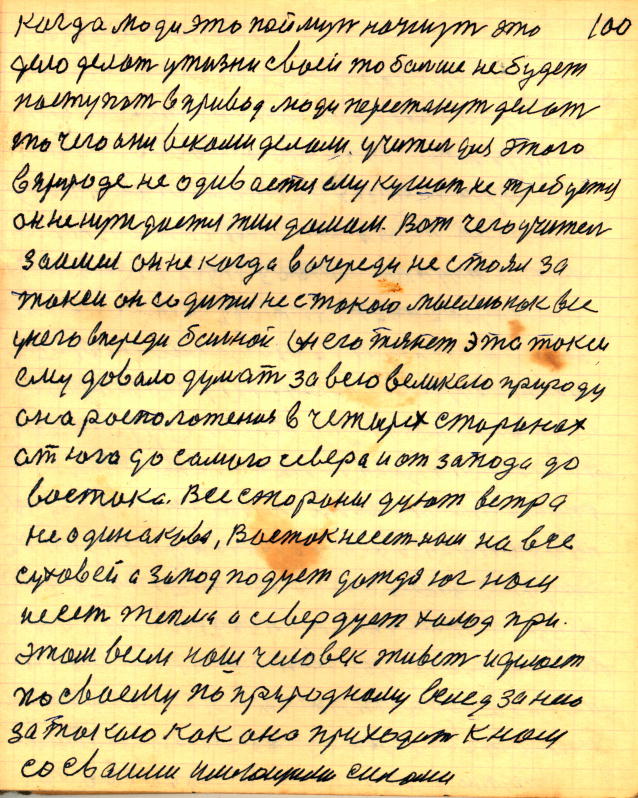 когда люди это поймут начнут это 100
дело делат у жизни своей то болше не будет
поступат в привод люди перестанут делат
то чего они веками делали. учител для этого
в природе не одивается ему кушат не требуется
он не нуждаетя жил домам. Вот чего учител
заимел он не когда в очереди не стоял за
такси он садится не с такою мыслею как все
у него впереди болной он его тянет это такси
ему довало думат за всю великою природу
она росположеная в четырех сторонах
от юга до самого севера и от запода до
востока. Все стороны дуют ветра
не одинаково, Восток несет нам на все
суховей а запод подует дождя юг нам
несет тепла а север дует холод при.
этом всем наш человек живет и делает
по своему по природному вслед за нею
за такою как она приходит к нам
со своими имеющими силами